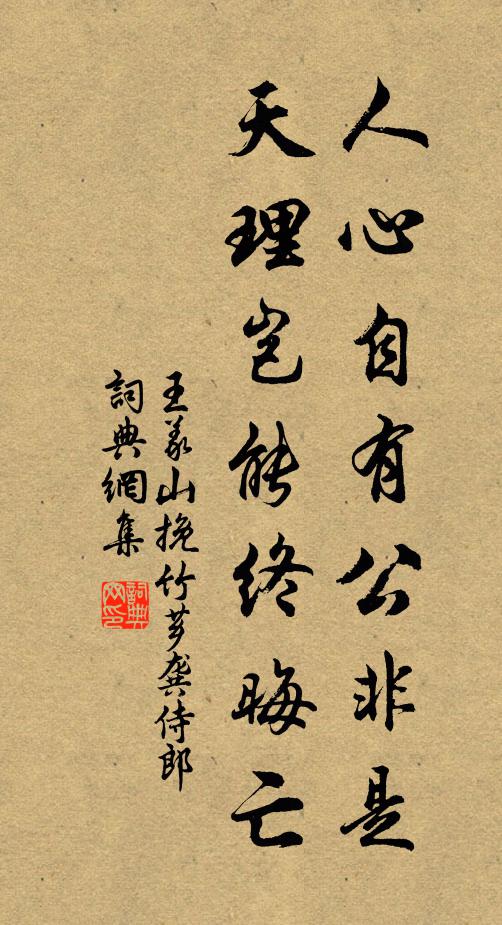 人心自有公非是
天理岂能終晦亡
王義山挽竹芗龔侍郎
詞典網集
詞典网印